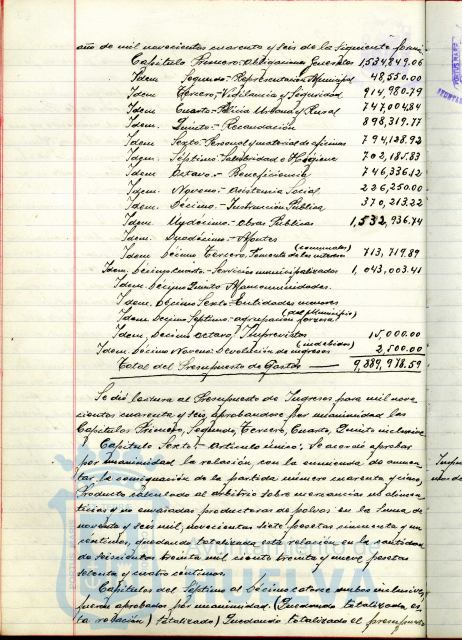 año de mil novecientos cuarenta y seis de la siguiente forma:
Capítulo Primero.- Obligaciones Generales 1.534,849.06
Idem Segundo.- Representación Municipal 48,550.00
Idem Tercero.- Vigilancia y Seguridad 914,980.79
Idem Cuarto.- Policía Urbana y Rural 747,004,84
Idem. Quinto.- Recaudación 898,319.77
Idem. Sexto.- Personal y material de oficinas 794,128.92
Idem. Séptimo.- Salubridad e Higiene 702,185.83
Idem Octavo.- Beneficiencia 746,336.12
Idem Noveno.- Asistencia Social 226,250.00
Idem Décimo.- Instrucción Pública 370,213.22
Idem Undécimo.- Obras Públicas 1,532,936.74
Idem Duodécimo.- Montes
Idem Décimo Tercero, Fomento de los intereses (comunales) 713,719.89
Idem, Décimo cuarto.- Servicios municipalizados 1,043,003.41
Idem Décimo Quinto.- Mancomunidades.
Idem. Décimo Sexto.- Entidades menores
Idem Décimo Septimo.- agrupación forzosa (del Municipio)
Idem, Décimo Octavo, Imprevistos 15,000.00
Idem. Décimo Noveno. Devolución de ingresos (indebidos) 2,500.00
Total del Presupuesto de Gastos 9,889,978.59
Se dió lectura al Presupuesto de Ingresos para mil nove
cientos cuarenta y seis, aprobandose por unanimidad los
Capítulos Primero, Segundo, Tercero, Cuarto, Quinto inclusive
y Capítulo Sexto.- Artículo único: Se acordó aprobar
por unanimidad la relación, con la enmienda de aumen
tar la consignación de la partida número cuarenta y cinco,
Producto calculado al arbitrio sobre mercancías no alimen
ticias y no envasadas productoras de polvos en la suma de
noventa y seis mil, novecientas siete pesetas cincuenta y un
céntimos, quedando totalizada esta relación en la cantidad
de seiscientas treinta mil ciento treinta y nueve pesetas
setenta y cuatro céntimos.
Capítulos del Septimo al Décimo catorce ambos inclusive,
fueron aprobados por unanimidad. (Quedando totalizada es
ta relación) totalizado) Quedando totalizado el presupues
Ayuntamiento de
HUELVA